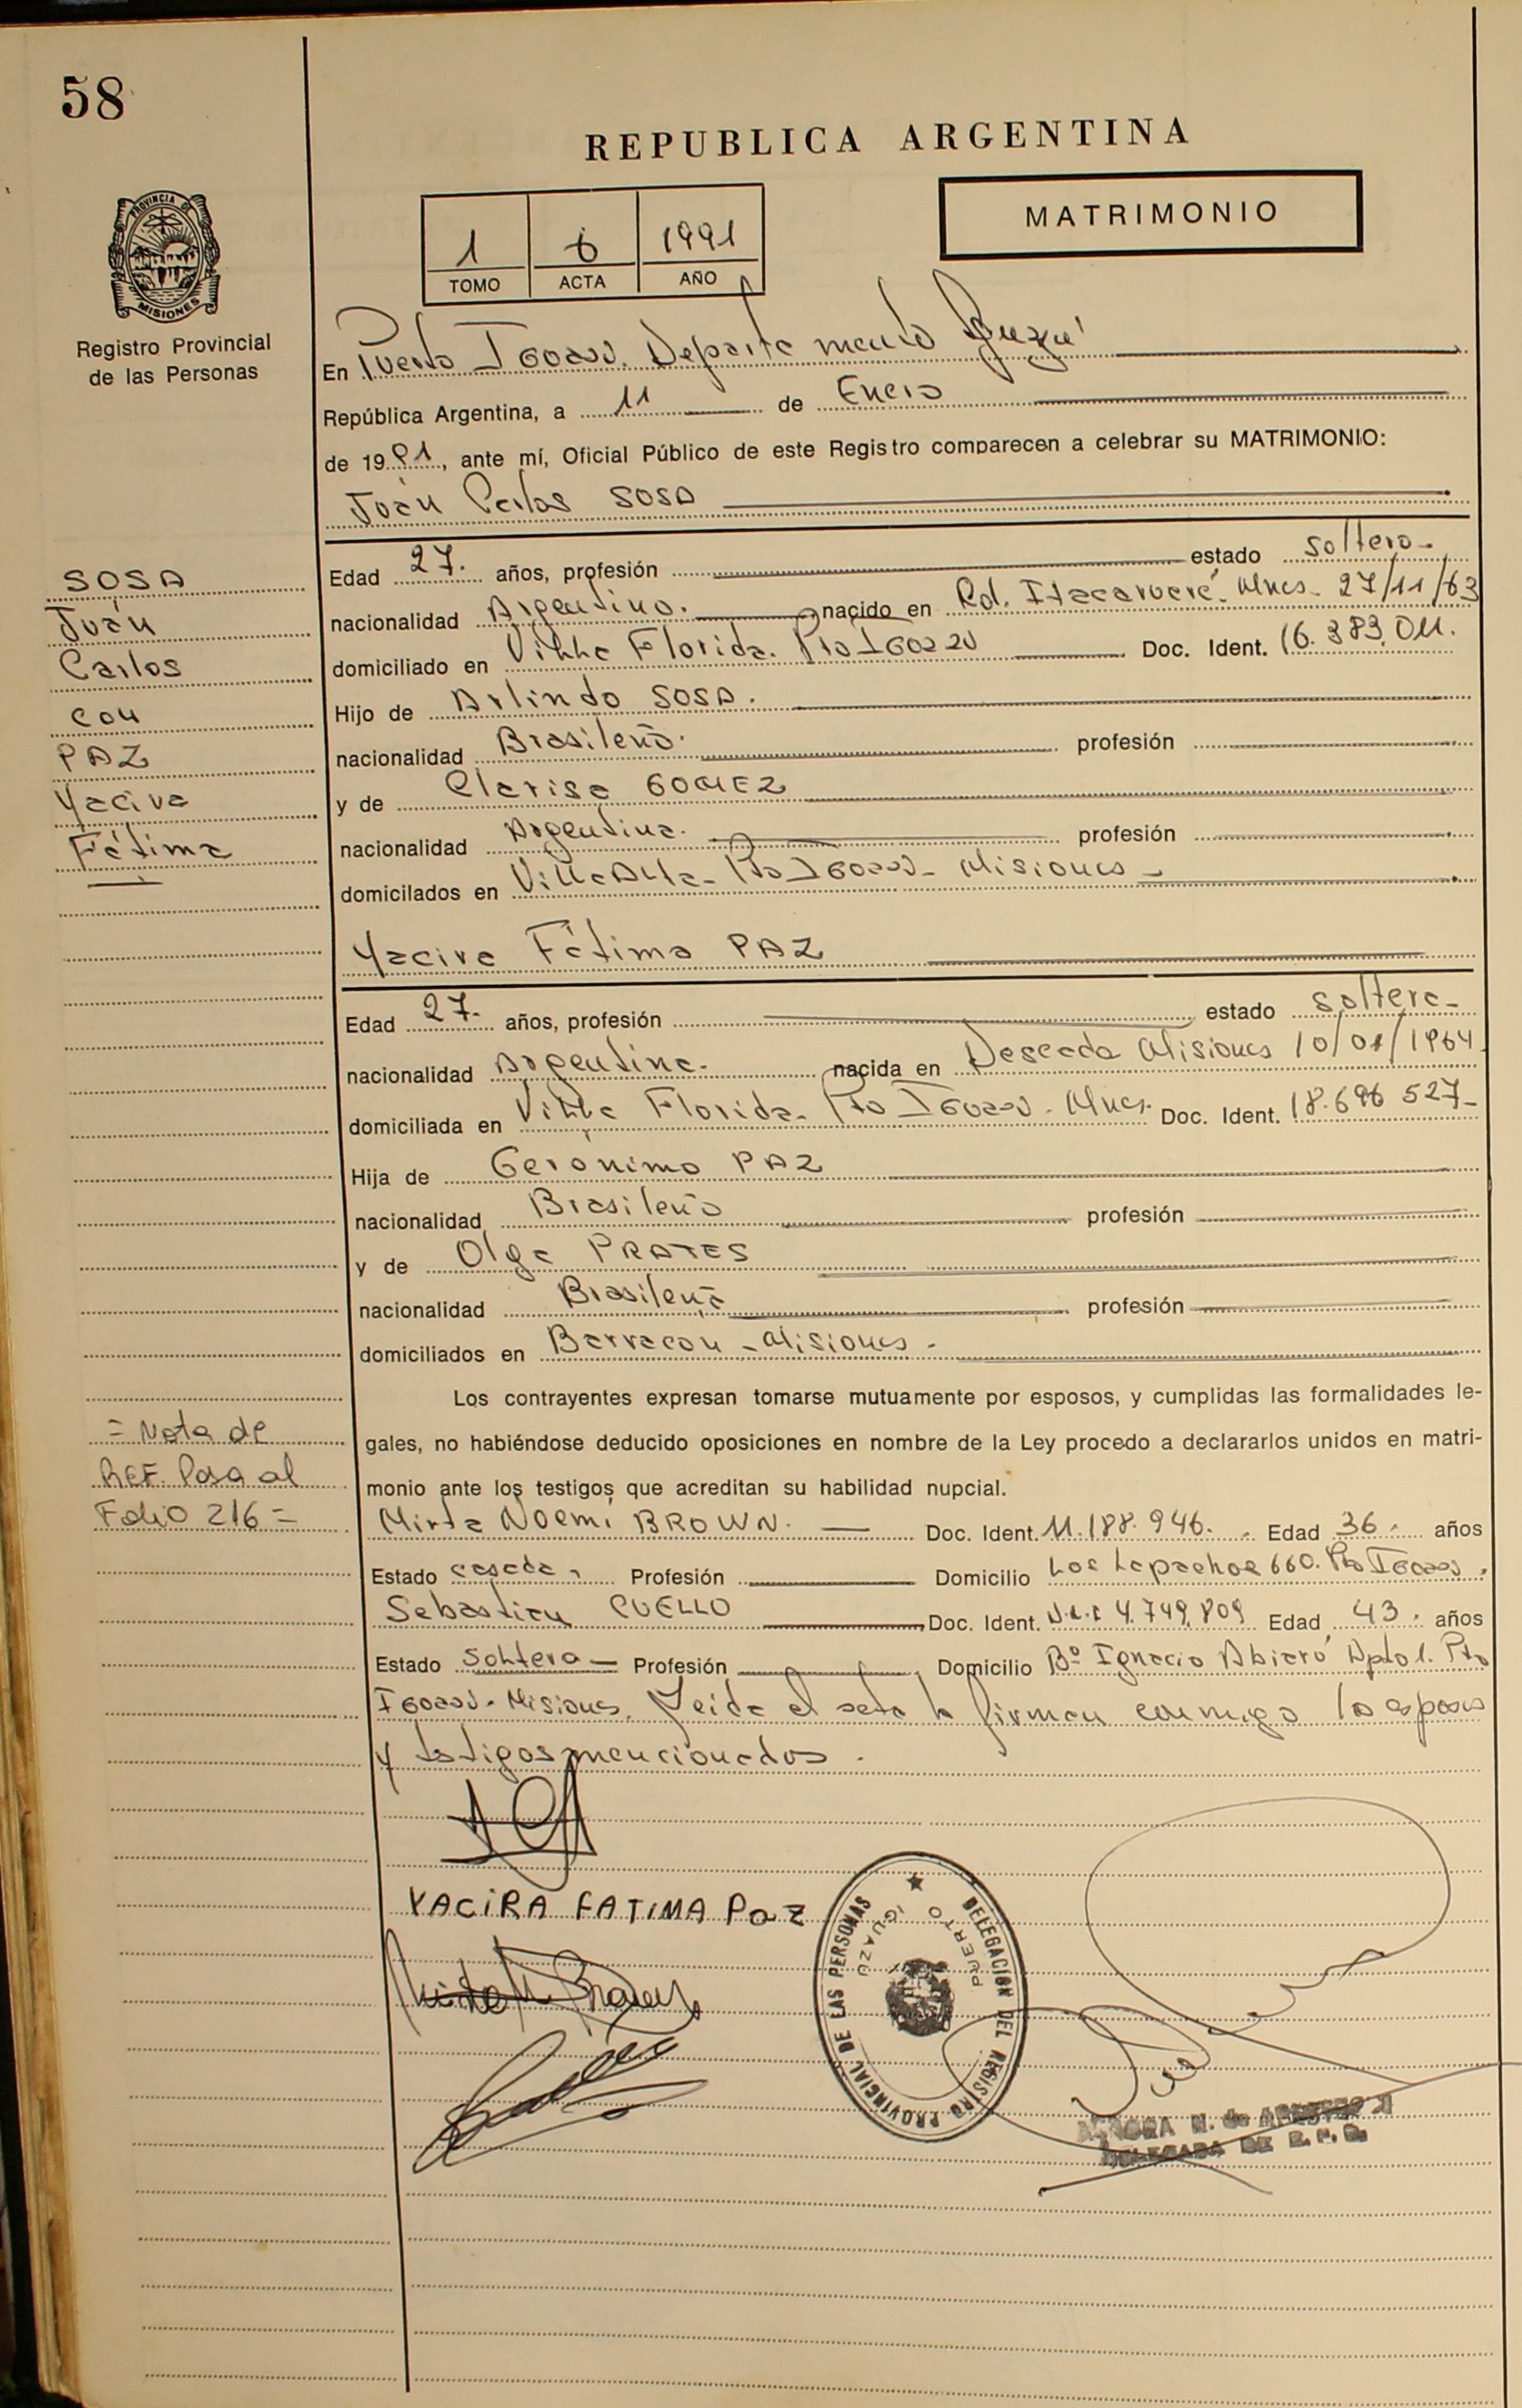 58
REPUBLICA ARGENTINA
PROVINCIA DE
MISIONES
Registro Provincial
de las Personas
MATRIMONIO
1 6 1991
TOMO ACTA AÑO
En Puerto Iguazú. Departamento Iguazú
República Argentina, a 11 de Enero
de 1991, ante mí, Oficial Público de este Registro comparecen a celebrar su MATRIMONIO:
Juán Carlos SOSA
SOSA
Juán
Carlos
con
PAZ
Yacira
Fátima
Edad 27. años, profesión estado soltero-
nacionalidad Argentino. nacido en Cd. Itacaruaré- Mnes- 27/11/63
domiciliado en Villa Florida. Pto Iguazú Doc. Ident. 16.383.011.
Hijo de Arlindo SOSA.
nacionalidad Brasileño. profesión
y de Clarisa GOMEZ
nacionalidad Argentina. profesión
domicilados en Villa Alta- Pto Iguazú- Misiones-
Yacira Fátima PAZ
Edad 27- años, profesión estado soltera-
nacionalidad Argentina- nacida en Deseada Misiones 10/01/1964
domiciliada en Villa Florida- Pto Iguazú- Mnes- Doc. Ident. 18.696 527-
Hija de Geronimo PAZ
nacionalidad Brasileño profesión
y de Olga PRATES
nacionalidad Brasileña profesión
domiciliados en Barracon - Misiones -
Los contrayentes expresan tomarse mutuamente por esposos, y cumplidas las formalidades le-
gales, no habiéndose deducido oposiciones en nombre de la Ley procedo a declararlos unidos en matri-
monio ante los testigos que acreditan su habilidad nupcial.
= Nota de
REF. Pasa al
Folio 216 =
Mirta Noemí BROWN. Doc. Ident. 11.188.946. Edad 36. años
Estado casada, Profesión Domicilio Los Lapachos 660. Pto Iguazú.
Sebastian CUELLO Doc. Ident. 4.749.809 Edad 43. años
Estado Soltero- Profesión Domicilio Bº Ignacio Abiaru Dpto 1. Pto
Iguazú- Misiones. Leida el acta la firman conmigo los esposos
y testigos mencionados.
YACIRA FATIMA Paz
DELEGACION DEL REGISTRO PROVINCIAL DE LAS PERSONAS
PUERTO IGUAZÚ
N. de
DELEGADA DE